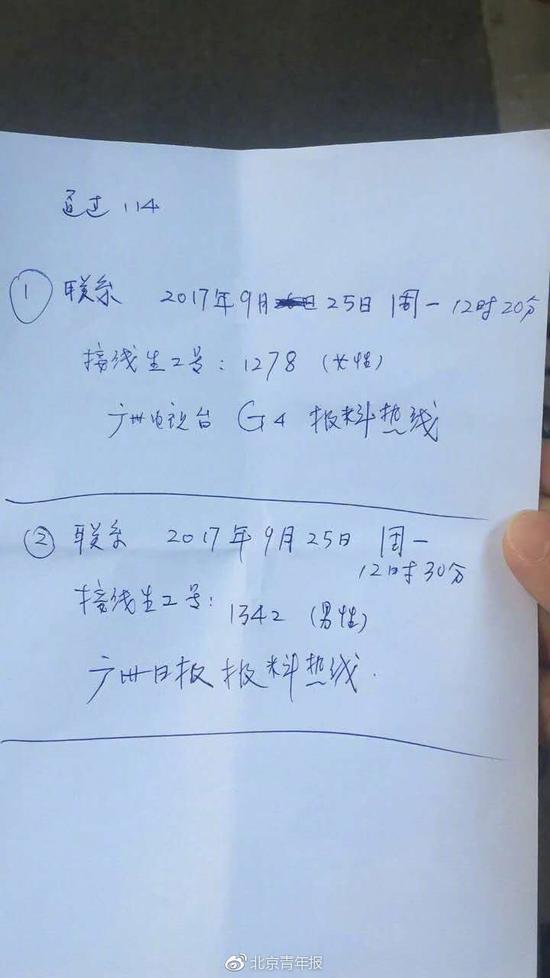 通过114
① 联系 2017年9月25日 周一 12时20分
接线生工号：1278（女性）
广州电视台 G4 报料热线
② 联系 2017年9月25日 周一
12时30分
接线生工号：1342（男性）
广州日报报料热线.
北京青年报